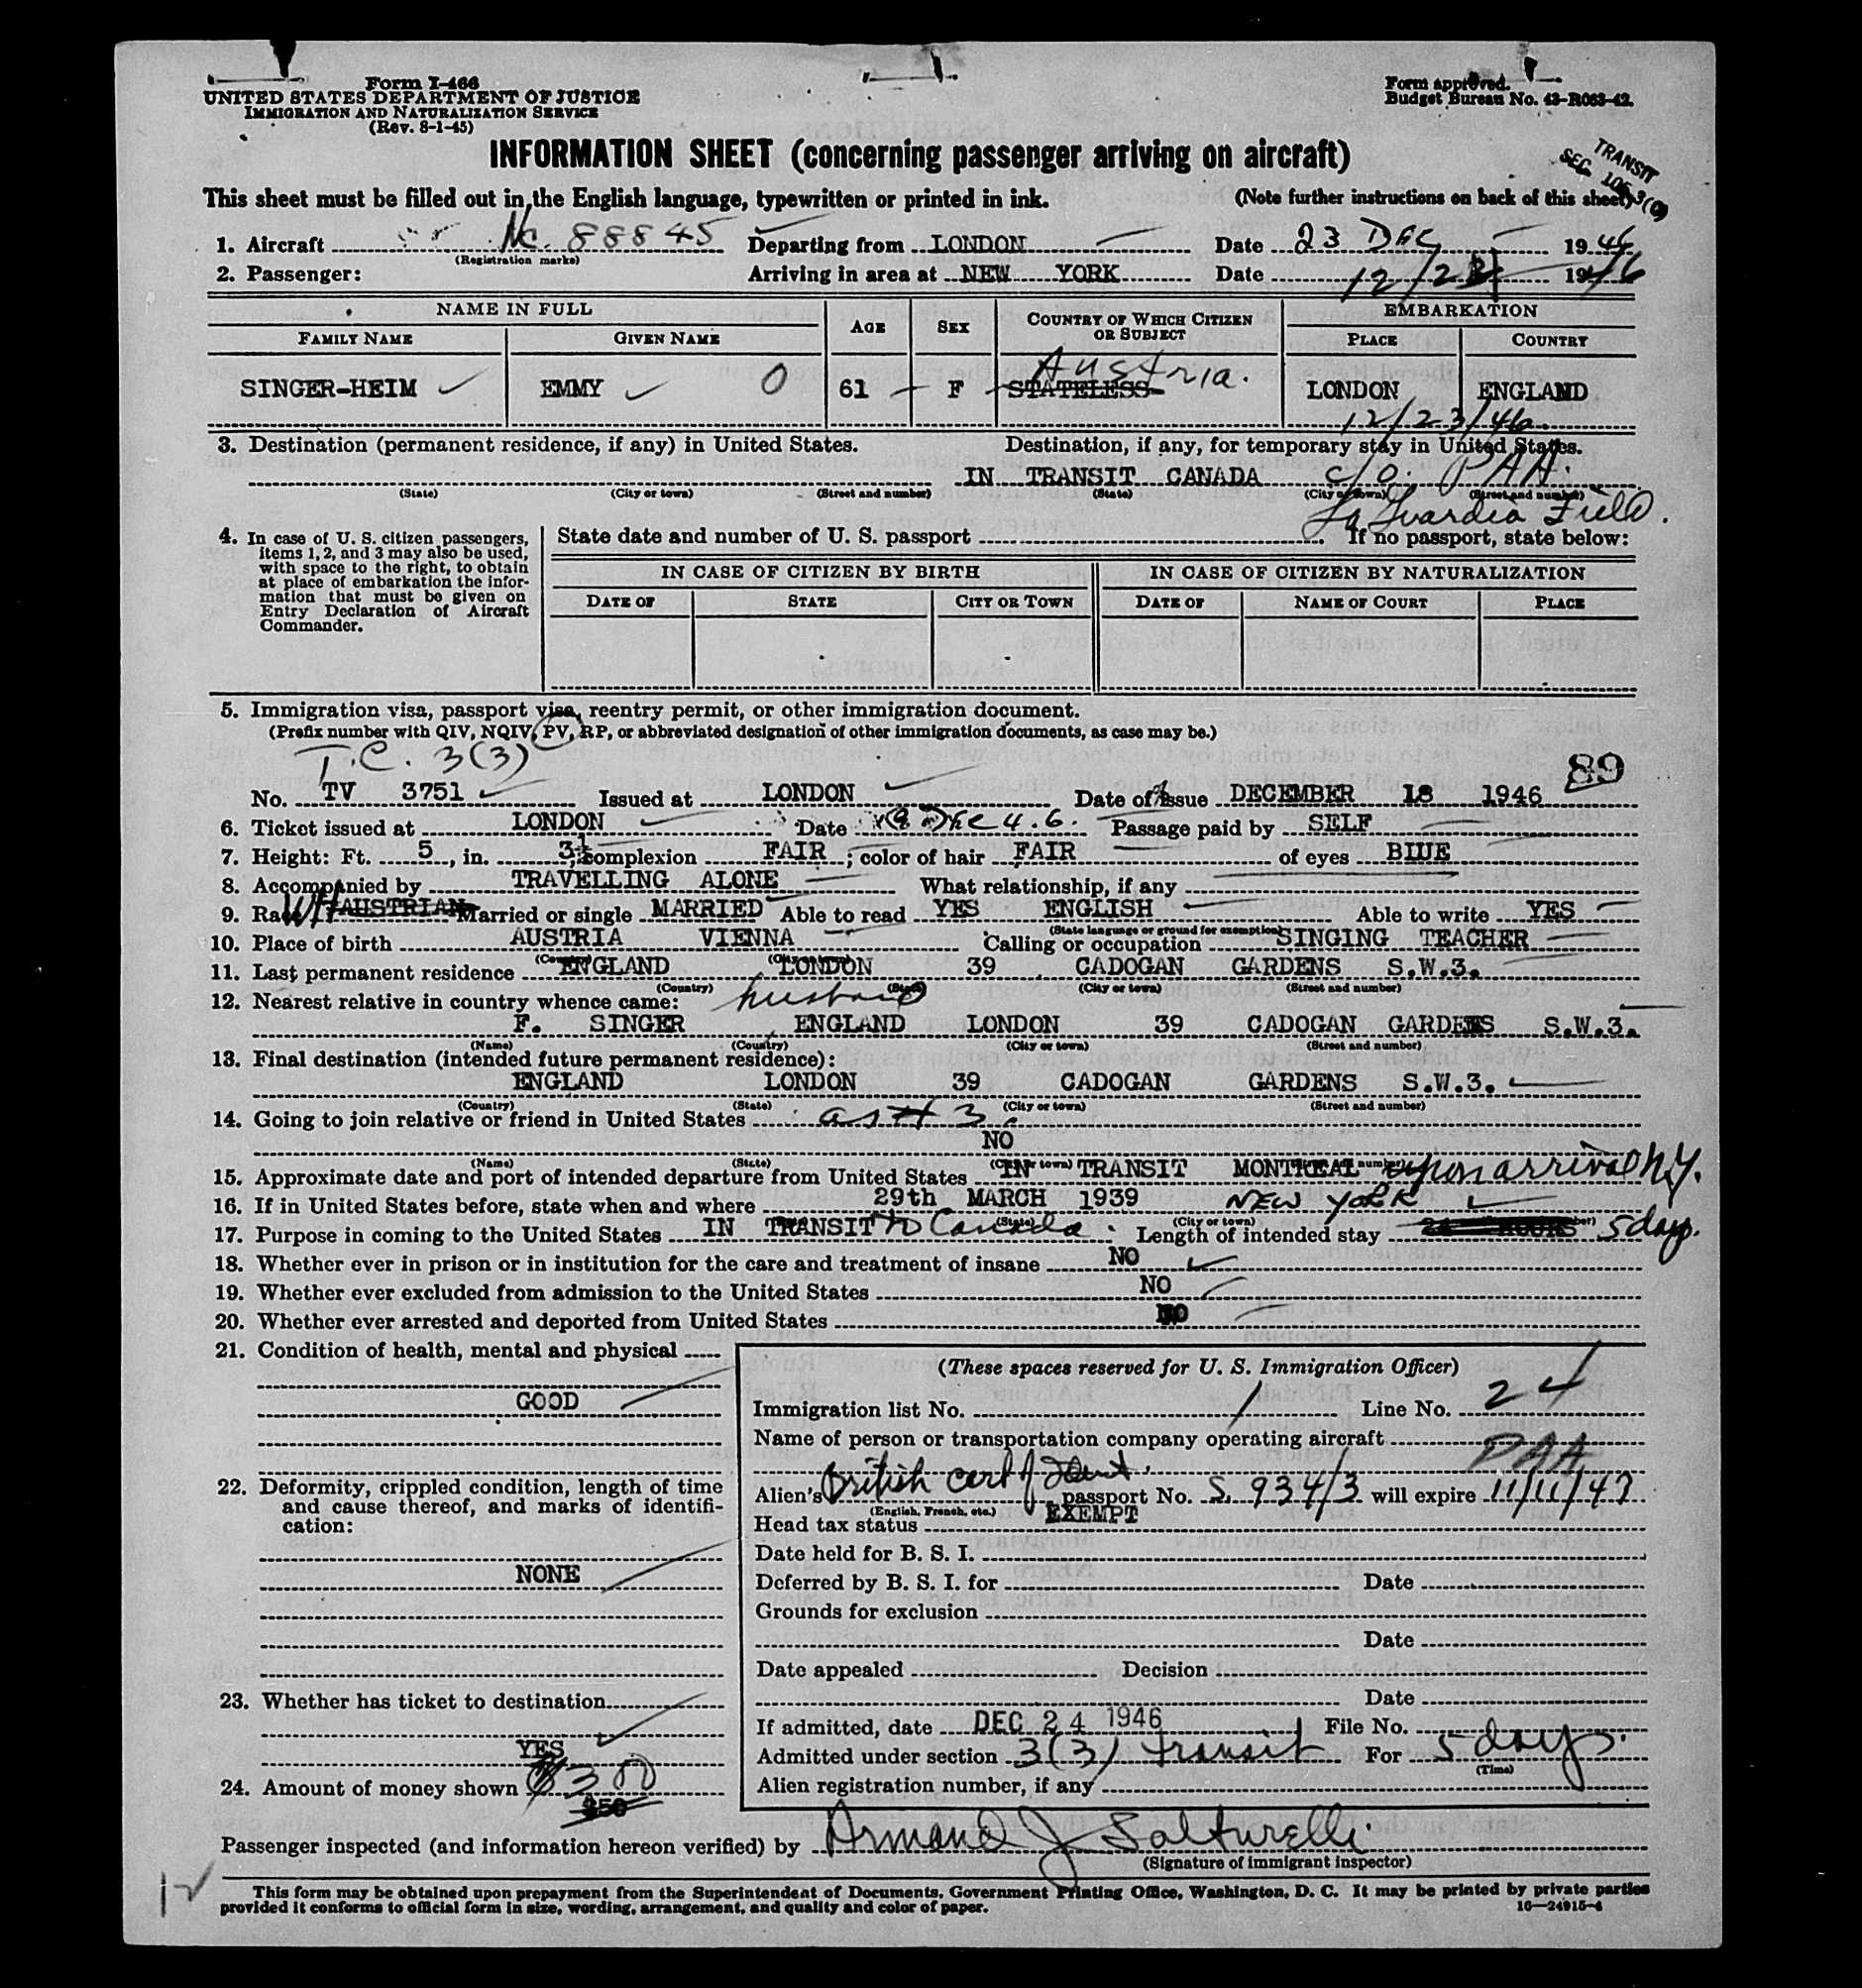 Form I-466
UNITED STATES DEPARTMENT OF JUSTICE
IMMIGRATION AND NATURALIZATION SERVICE
(Rev. 8-1-45)
Form approved.
Budget Bureau No. 43-R063-42.
INFORMATION SHEET (concerning passenger arriving on aircraft)
TRANSIT
SEC.
This sheet must be filled out in the English language, typewritten or printed in ink. (Note further instructions on back of this sheet)
1. Aircraft Nc. 88845 Departing from LONDON Date 23 DEC 1946
(Registration marks)
2. Passenger: Arriving in area at NEW YORK Date 12/23 1946
NAME IN FULL AGE SEX COUNTRY OF WHICH CITIZEN OR SUBJECT EMBARKATION
FAMILY NAME GIVEN NAME PLACE COUNTRY
Austria.
SINGER-HEIM EMMY 0 61 F STATELESS LONDON ENGLAND
12/23/46
3. Destination (permanent residence, if any) in United States. Destination, if any, for temporary stay in United States.
IN TRANSIT CANADA c/o. PAA.
(State) (City or town) (Street and number) (State) (City or town) (Street and number)
La Guardia Field.
4. In case of U. S. citizen passengers, items 1, 2, and 3 may also be used, with space to the right, to obtain at place of embarkation the information that must be given on Entry Declaration of Aircraft Commander.
State date and number of U. S. passport If no passport, state below:
IN CASE OF CITIZEN BY BIRTH IN CASE OF CITIZEN BY NATURALIZATION
DATE OF STATE CITY OR TOWN DATE OF NAME OF COURT PLACE
5. Immigration visa, passport visa, reentry permit, or other immigration document.
(Prefix number with QIV, NQIV, PV, RP, or abbreviated designation of other immigration documents, as case may be.)
T.C. 3(3)
89
No. TV 3751 Issued at LONDON Date of Issue DECEMBER 18 1946
6. Ticket issued at LONDON Date Dec 46. Passage paid by SELF
7. Height: Ft. 5, in. 3½; complexion FAIR; color of hair FAIR of eyes BLUE
8. Accompanied by TRAVELLING ALONE What relationship, if any
9. Race WH AUSTRIAN Married or single MARRIED Able to read YES ENGLISH Able to write YES
(State language or ground for exemption)
10. Place of birth AUSTRIA VIENNA Calling or occupation SINGING TEACHER
(Country) (City or town)
11. Last permanent residence ENGLAND LONDON 39 CADOGAN GARDENS S.W.3.
(Country) (State) (City or town) (Street and number)
12. Nearest relative in country whence came: husband
F. SINGER ENGLAND LONDON 39 CADOGAN GARDENS S.W.3.
(Name) (Country) (City or town) (Street and number)
13. Final destination (intended future permanent residence):
ENGLAND LONDON 39 CADOGAN GARDENS S.W.3.
(Country) (State) (City or town) (Street and number)
14. Going to join relative or friend in United States as # 3
NO
(Name) (State) (City or town) number)
15. Approximate date and port of intended departure from United States IN TRANSIT MONTREAL upon arrival N.Y.
16. If in United States before, state when and where 29th MARCH 1939 NEW YORK
(State) (City or town)
17. Purpose in coming to the United States IN TRANSIT to Canada. Length of intended stay 24 HOURS 5 days.
18. Whether ever in prison or in institution for the care and treatment of insane NO
19. Whether ever excluded from admission to the United States NO
20. Whether ever arrested and deported from United States NO
21. Condition of health, mental and physical
GOOD
22. Deformity, crippled condition, length of time and cause thereof, and marks of identification:
NONE
23. Whether has ticket to destination
YES
24. Amount of money shown 30
$50
(These spaces reserved for U. S. Immigration Officer)
Immigration list No. 1 Line No. 24
Name of person or transportation company operating aircraft
PAA
Alien's British cert of Ident. passport No. S. 934/3 will expire 11/11/47
(English, French, etc.)
Head tax status EXEMPT
Date held for B. S. I.
Deferred by B. S. I. for Date
Grounds for exclusion
Date
Date appealed Decision
Date
If admitted, date DEC 24 1946 File No.
Admitted under section 3(3) transit For 5 days.
(Time)
Alien registration number, if any
Passenger inspected (and information hereon verified) by Armand J Salturelli
(Signature of immigrant inspector)
This form may be obtained upon prepayment from the Superintendent of Documents, Government Printing Office, Washington, D. C. It may be printed by private parties
provided it conforms to official form in size, wording, arrangement, and quality and color of paper. 16—24915-4